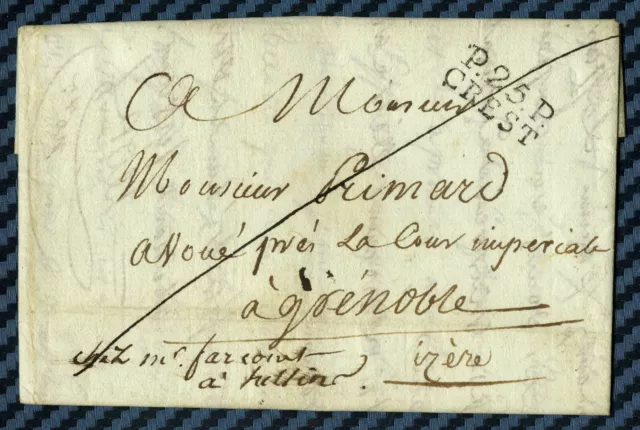 P.25.P.
CREST
A Monsieur
Monsieur Primard
avoué près La Cour imperiale
à grénoble
izère
chez mr. farconet
à